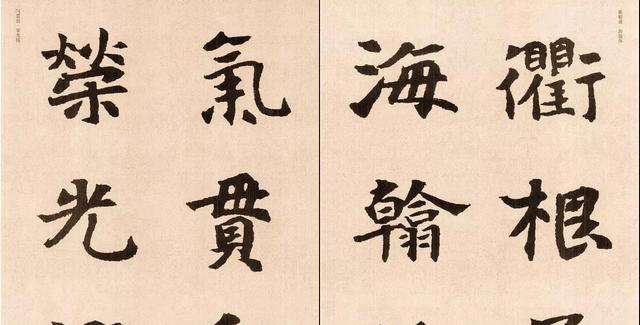 衢根
海翰
氣貫
榮光